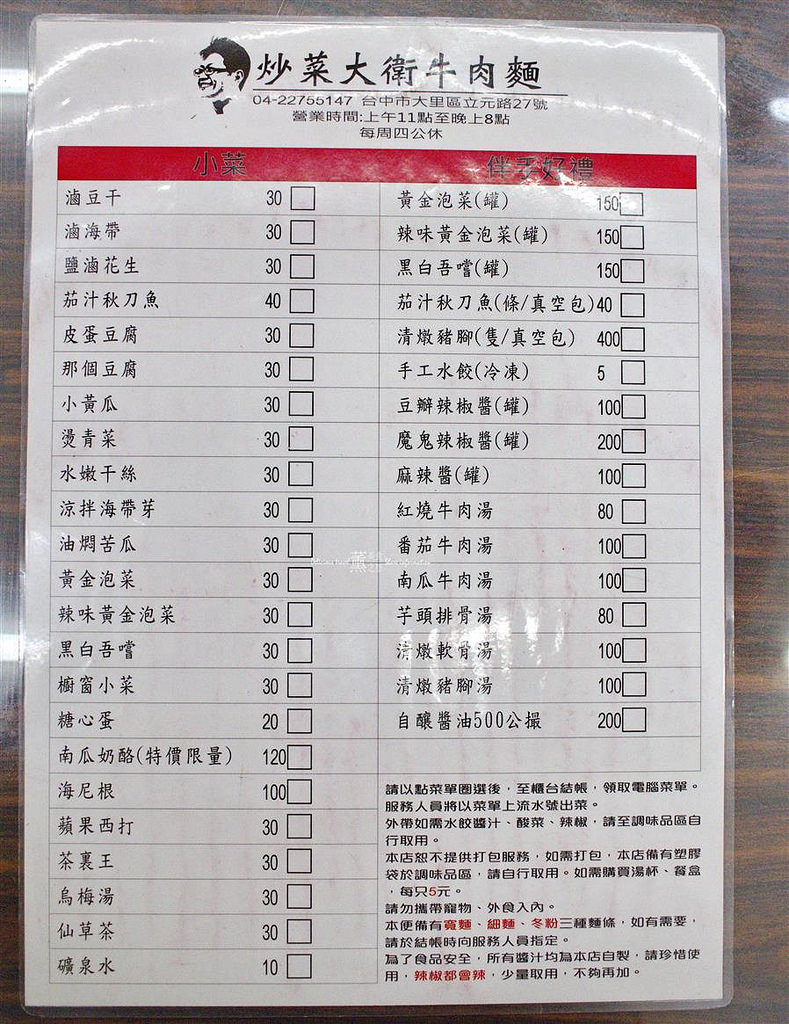 炒菜大衛牛肉麵
04-22755147 台中市大里區立元路27號
營業時間:上午11點至晚上8點
每周四公休
小菜
滷豆干 30
滷海帶 30
鹽滷花生 30
茄汁秋刀魚 40
皮蛋豆腐 30
那個豆腐 30
小黃瓜 30
燙青菜 30
水嫩干絲 30
涼拌海帶芽 30
油燜苦瓜 30
黃金泡菜 30
辣味黃金泡菜 30
黑白吾嚐 30
櫥窗小菜 30
糖心蛋 20
南瓜奶酪(特價限量) 120
海尼根 100
蘋果西打 30
茶裏王 30
烏梅湯 30
仙草茶 30
礦泉水 10
伴手好禮
黃金泡菜(罐) 150
辣味黃金泡菜(罐) 150
黑白吾嚐(罐) 150
茄汁秋刀魚(條/真空包) 40
清燉豬腳(隻/真空包) 400
手工水餃(冷凍) 5
豆瓣辣椒醬(罐) 100
魔鬼辣椒醬(罐) 200
麻辣醬(罐) 100
紅燒牛肉湯 80
番茄牛肉湯 100
南瓜牛肉湯 100
芋頭排骨湯 80
清燉軟骨湯 100
清燉豬腳湯 100
自釀醬油500公撮 200
請以點菜單圈選後，至櫃台結帳，領取電腦菜單。
服務人員將以菜單上流水號出菜。
外帶如需水餃醬汁、酸菜、辣椒，請至調味品區自
行取用。
本店恕不提供打包服務，如需打包，本店備有塑膠
袋於調味品區，請自行取用。如需購買湯杯、餐盒
，每只5元。
請勿攜帶寵物、外食入內。
本便備有寬麵、細麵、冬粉三種麵條，如有需要，
請於結帳時向服務人員指定。
為了食品安全，所有醬汁均為本店自製，請珍惜使
用，辣椒都會辣，少量取用，不夠再加。